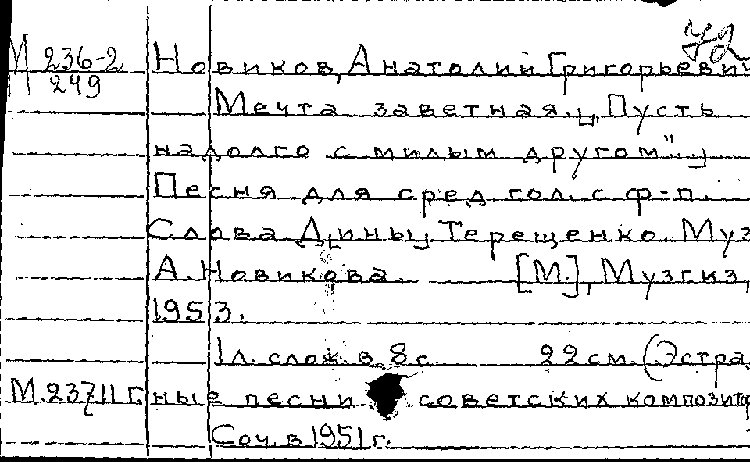 72
М 236-2 Новиков, Анатолий Григорьевич
249
Мечта заветная. „Пусть
надолго с милым другом"...
Песня для сред. гол. с ф-п.
Слова Дины Терещенко. Муз
А. Новикова. [М.], Музгиз,
1953.
1 л. слож. в 8 с. 22 см. (Эстра
М.23711 г. ные песни советских композитор
Соч. в 1951 г.